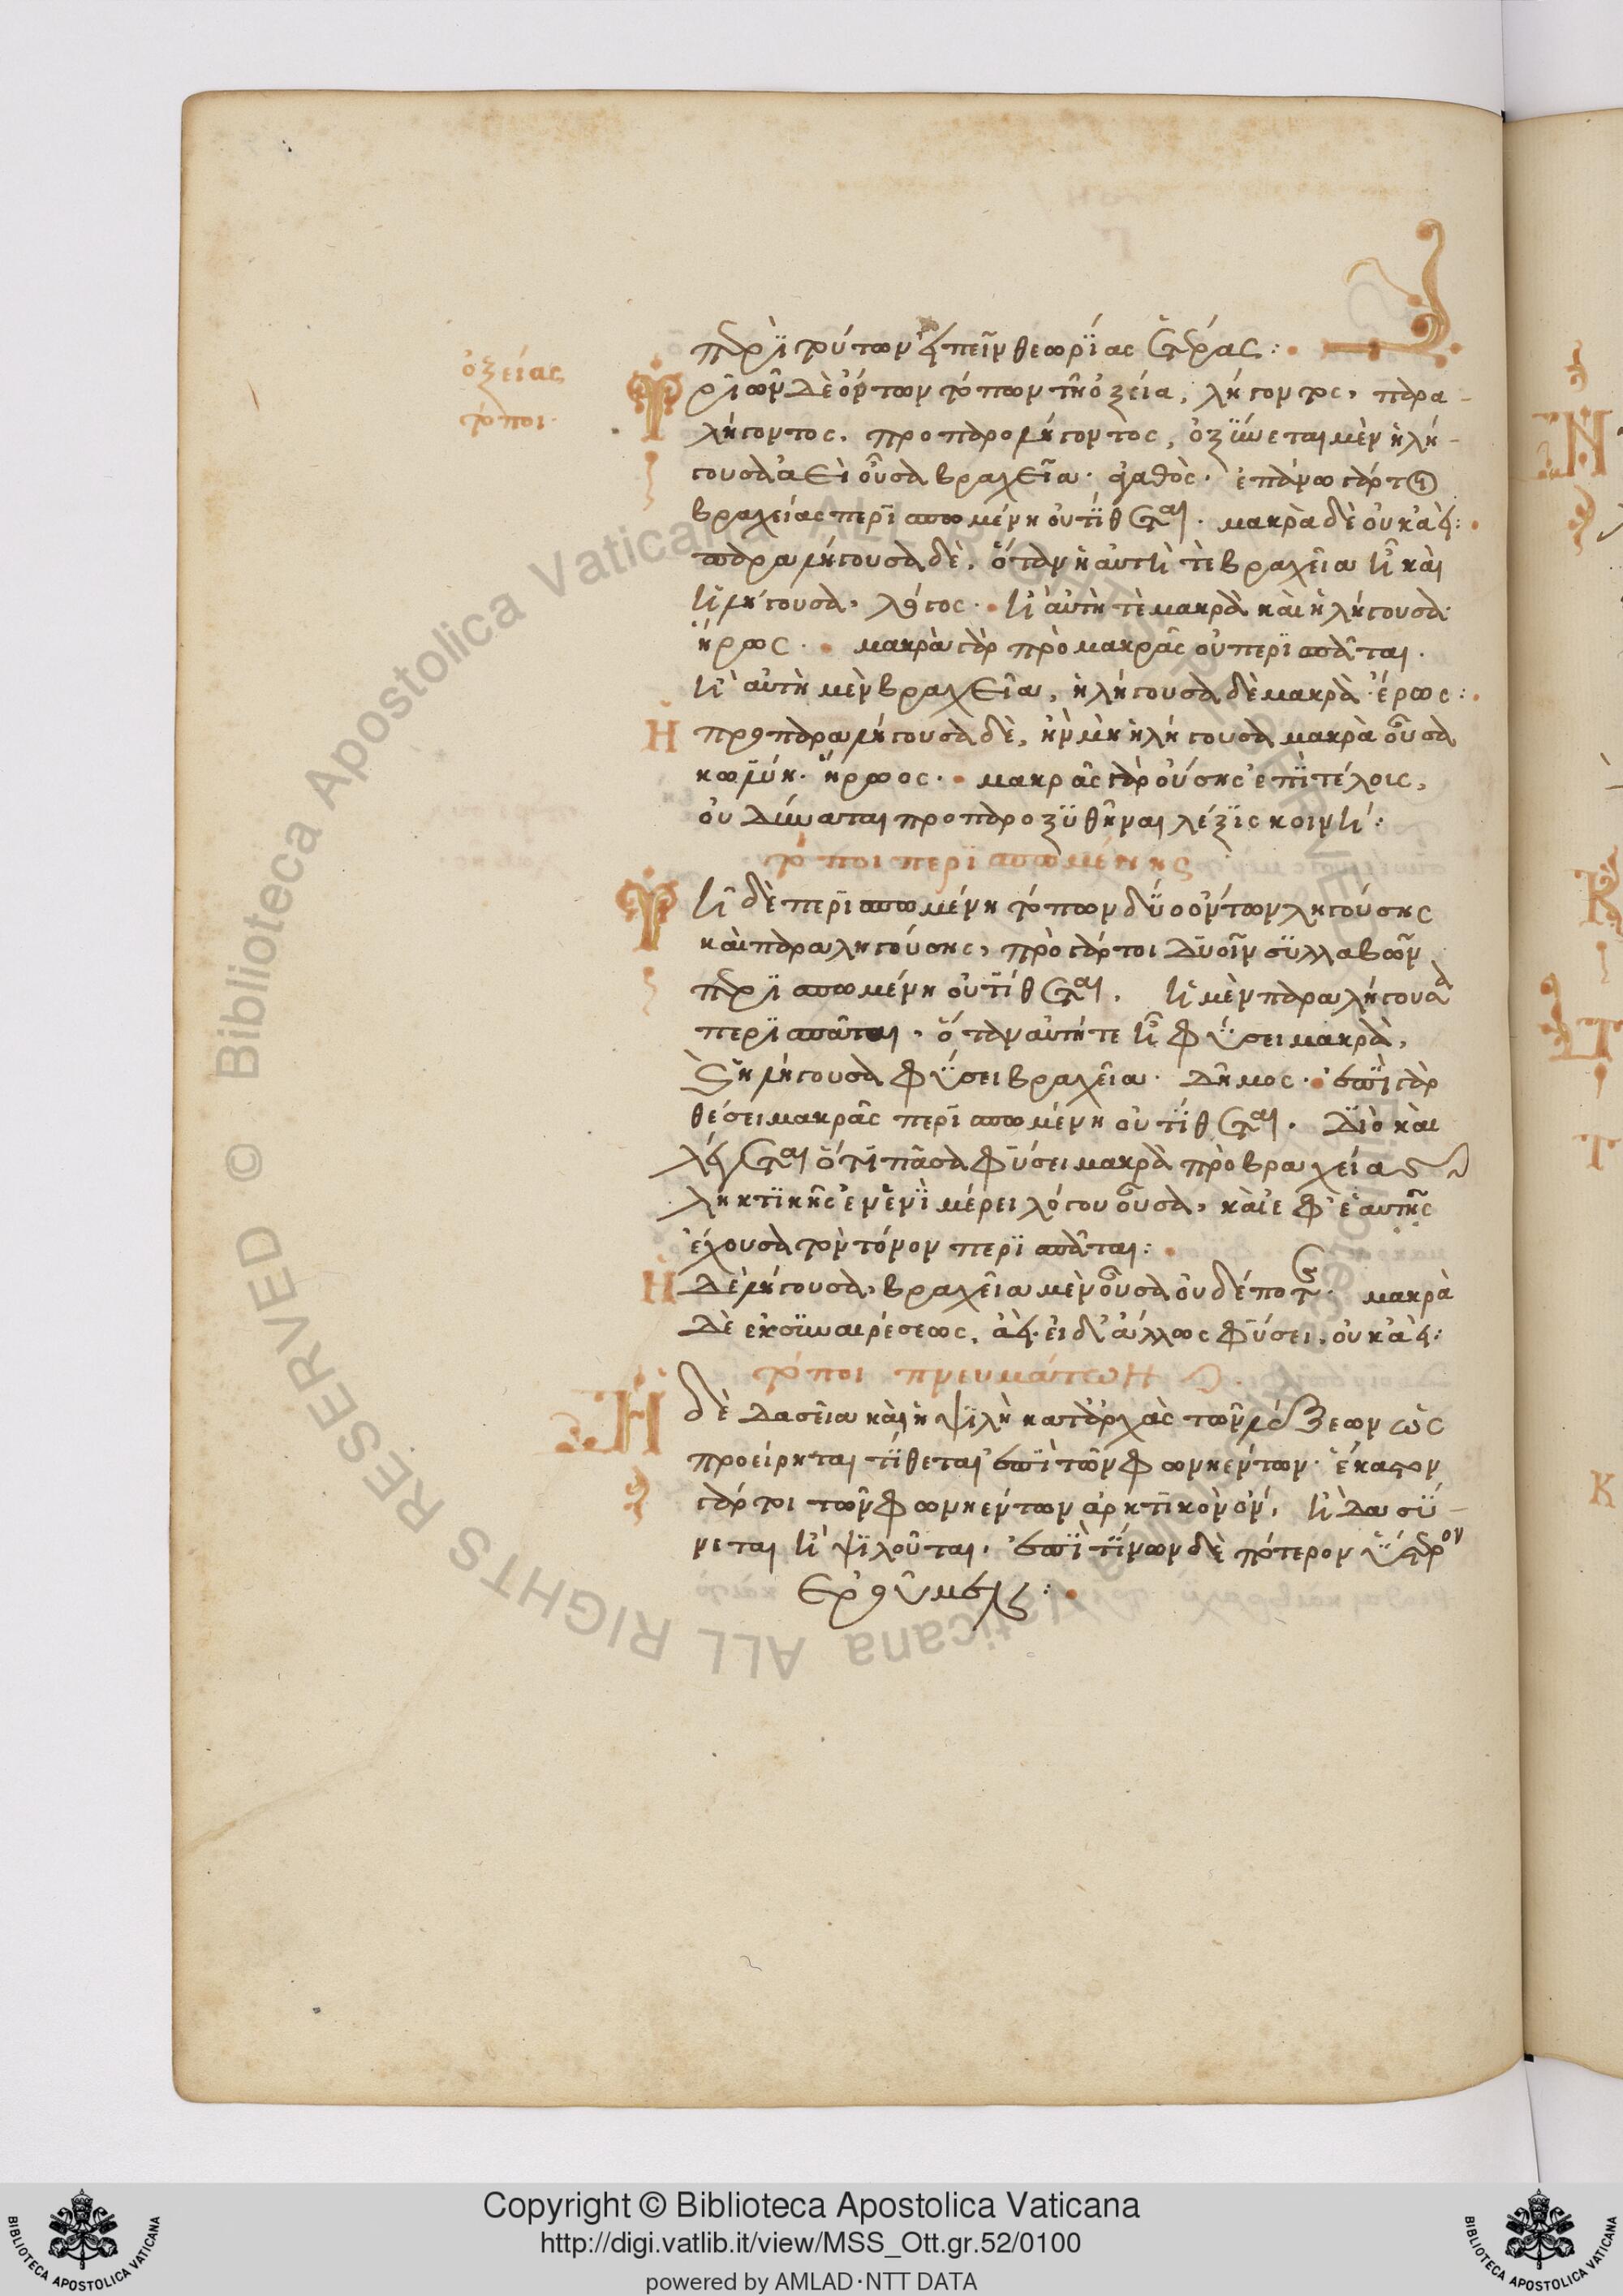 περὶ τούτων εἰπεῖν θεωρίας ἑτέρας:
ὀξείας
τόποι
Τριῶν δὲ ὄντων τόπων τῇ ὀξεία, λήγοντος, παρα-
λήγοντος, προπαραλήγοντος, ὀξύνεται μὲν ἡ λή-
γουσα ἀεὶ οὖσα βραχεῖα· ἀγαθὸς· ἐπάνω γὰρ τῆς
βραχείας περισπωμένη οὐ τίθεται· μακρὰ δὲ οὐκ ἀεί:
παραλήγουσα δὲ, ὅταν ἡ αὐτή τε βραχεῖα ἦ καὶ
ἡ λήγουσα, λόγος· ἢ αὐτὴ τὲ μακρὰ καὶ ἡ λήγουσα·
ἥρως· μακρὰ γὰρ πρὸ μακρᾶς οὐ περισπᾶται·
ἢ αὐτὴ μὲν βραχεῖα, ἡ λήγουσα δὲ μακρὰ· ἔρως:
Ἡ προπαραλήγουσα δὲ, ἢν μὴ ἡ λήγουσα μακρὰ οὖσα
κωλύῃ· ἥρωος· μακρᾶς γὰρ οὔσης ἐπὶ τέλοις,
οὐ δύναται προπαροξυθῆναι λέξις κοινή:
τόποι περισπωμένης
Τῆ δὲ περισπωμένη τόπων δύο ὄντων ληγούσης
καὶ παραληγούσης, πρὸ γάρ τοι δυοῖν συλλαβῶν
περισπωμένη οὐ τίθεται. ἡ μὲν παραλήγουσα
περισπᾶται, ὅταν αὐτή τε ἦ φύσει μακρὰ,
καὶ ἡ λήγουσα φύσει βραχεῖα· δῆμος· ἐπὶ γὰρ
θέσει μακρᾶς περισπωμένη οὐ τίθεται. Διὸ καὶ
λέγεται ὅτι πᾶσα φύσει μακρὰ πρὸ βραχείας
ληκτικῆς ἐν ἑνὶ μέρει λόγου οὖσα, καὶ ἐφ' ἑαυτῆς
ἔχουσα τὸν τόνον περισπᾶται:
Ἡ δὲ λήγουσα, βραχεῖα μὲν οὖσα οὐδέποτε· μακρὰ
δὲ ἐκ συναιρέσεως, ἀεί· εἰ δ' ἄλλως φύσει, οὐκ ἀεί:
τόποι πνευμάτων
Ἡ δὲ δασεῖα καὶ ἡ ψιλὴ κατ' ἀρχὰς τῶν λέξεων ὡς
προείρηται τίθεται ἐπὶ τῶν φωνηέντων· ἕκαστον
γάρ τοι τῶν φωνηέντων ἀρκτικὸν ὄν, ἢ δασύ-
νεται ἢ ψιλοῦται. ἐπὶ τίνων δὲ πότερον ὕστερον
ἐροῦμεν:
Copyright © Biblioteca Apostolica Vaticana
http://digi.vatlib.it/view/MSS_Ott.gr.52/0100
powered by AMLAD·NTT DATA
BIBLIOTECA APOSTOLICA VATICANA
BIBLIOTECA APOSTOLICA VATICANA
© Biblioteca Apostolica Vaticana ALL RIGHTS RESERVED